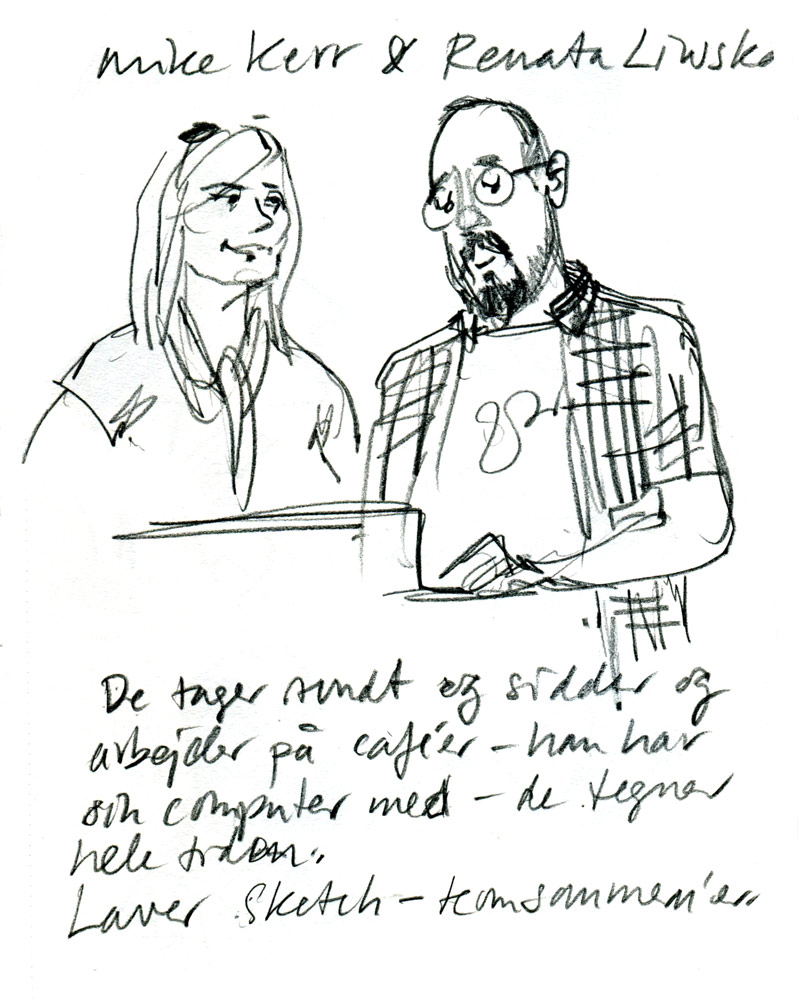 Mike Kerr & Renata Liwska
De tager rundt og sidder og
arbejder på caféer – han har
sin computer med – de tegner
hele tiden.
Laver Sketch –